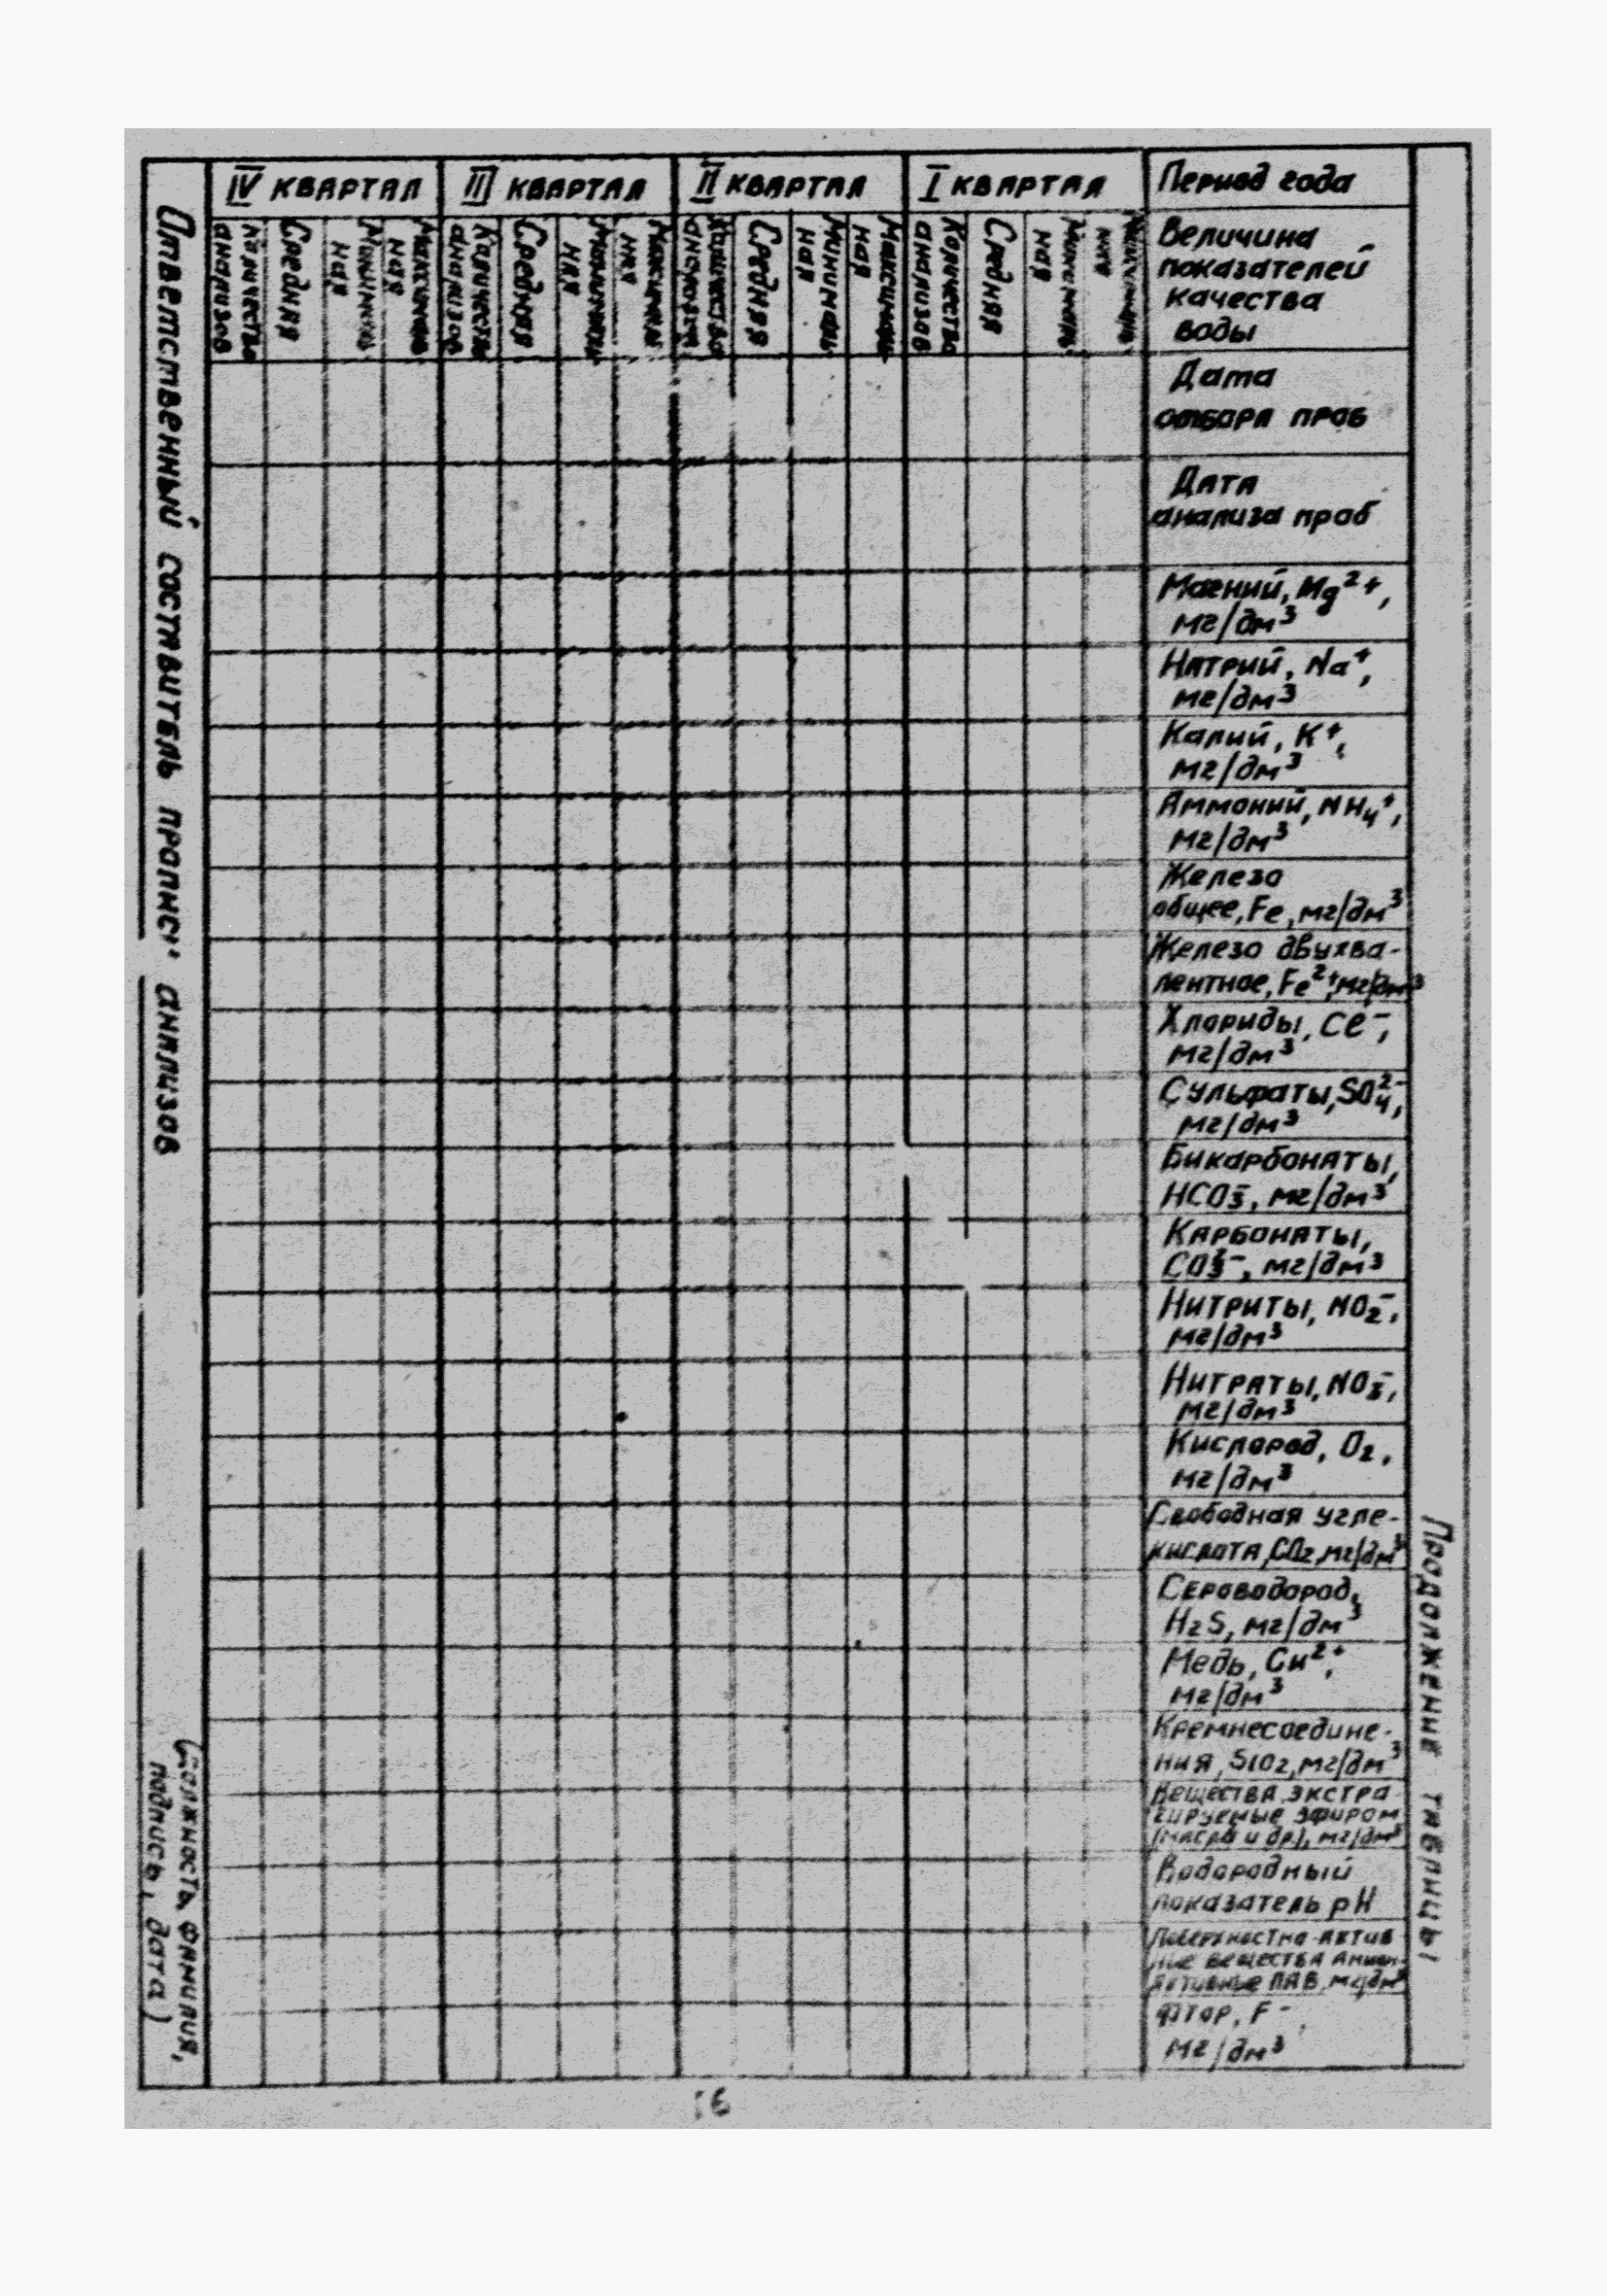 Продолжение таблицы
IV квартал
III квартал
II квартал
I квартал
Период года
Количество
анализов
Средняя
Минималь
ная
Максималь
ная
Количество
анализов
Средняя
Минималь
ная
Максималь
ная
Количество
анализов
Средняя
Минималь-
ная
Максималь-
ная
Количество
анализов
Средняя
Минималь-
ная
Величина
показателей
качества
воды
Дата
отбора проб
Дата
анализа проб
Магний, Mg²⁺,
мг/дм³
Натрий, Na⁺,
мг/дм³
Калий, K⁺,
мг/дм³
Аммоний, NH₄⁺,
мг/дм³
Железо
общее, Fe, мг/дм³
Железо двухва-
лентное, Fe²⁺, мг/дм³
Хлориды, Cl⁻,
мг/дм³
Сульфаты, SO₄²⁻,
мг/дм³
Бикарбонаты,
HCO₃⁻, мг/дм³
Карбонаты,
CO₃²⁻, мг/дм³
Нитриты, NO₂⁻,
мг/дм³
Нитраты, NO₃⁻,
мг/дм³
Кислород, O₂,
мг/дм³
Свободная угле-
кислота, CO₂, мг/дм³
Сероводород,
H₂S, мг/дм³
Медь, Cu²⁺,
мг/дм³
Кремнесоедине-
ния, SiO₂, мг/дм³
Вещества экстра
гируемые эфиром
(масла и др.), мг/дм³
Водородный
показатель pH
Поверхностно-актив
ные вещества Анион-
активные ПАВ, мг/дм³
Фтор, F⁻,
мг/дм³
Ответственный составитель прописи анализов
(должность, фамилия,
подпись, дата)